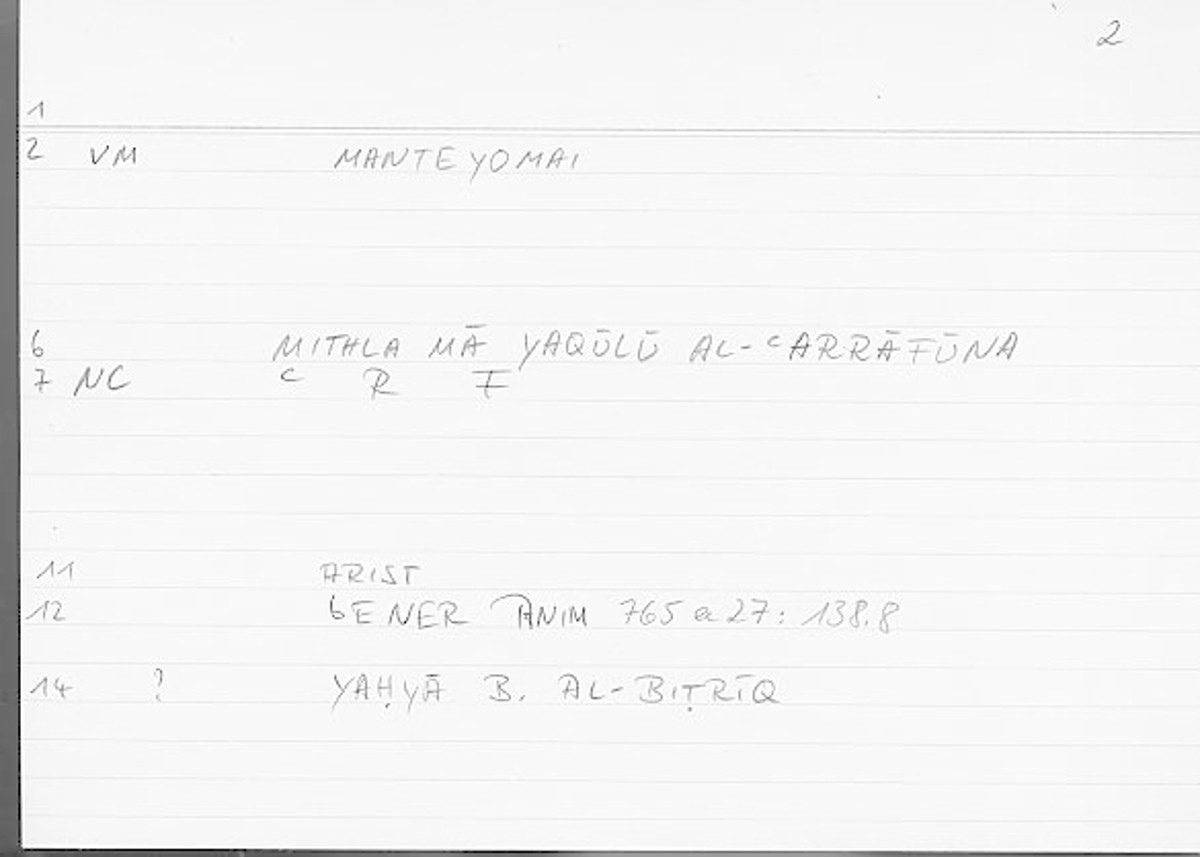 2
1
2 VM MANTEYOMAI
6 MITHLA MĀ YAQŪLŪ AL-ᶜARRĀFŪNA
7 NC ᶜ R F
11 ARIST
12 GENER ANIM 765 a 27: 138.8
14 ? YAḤYĀ B. AL-BIṬRĪQ